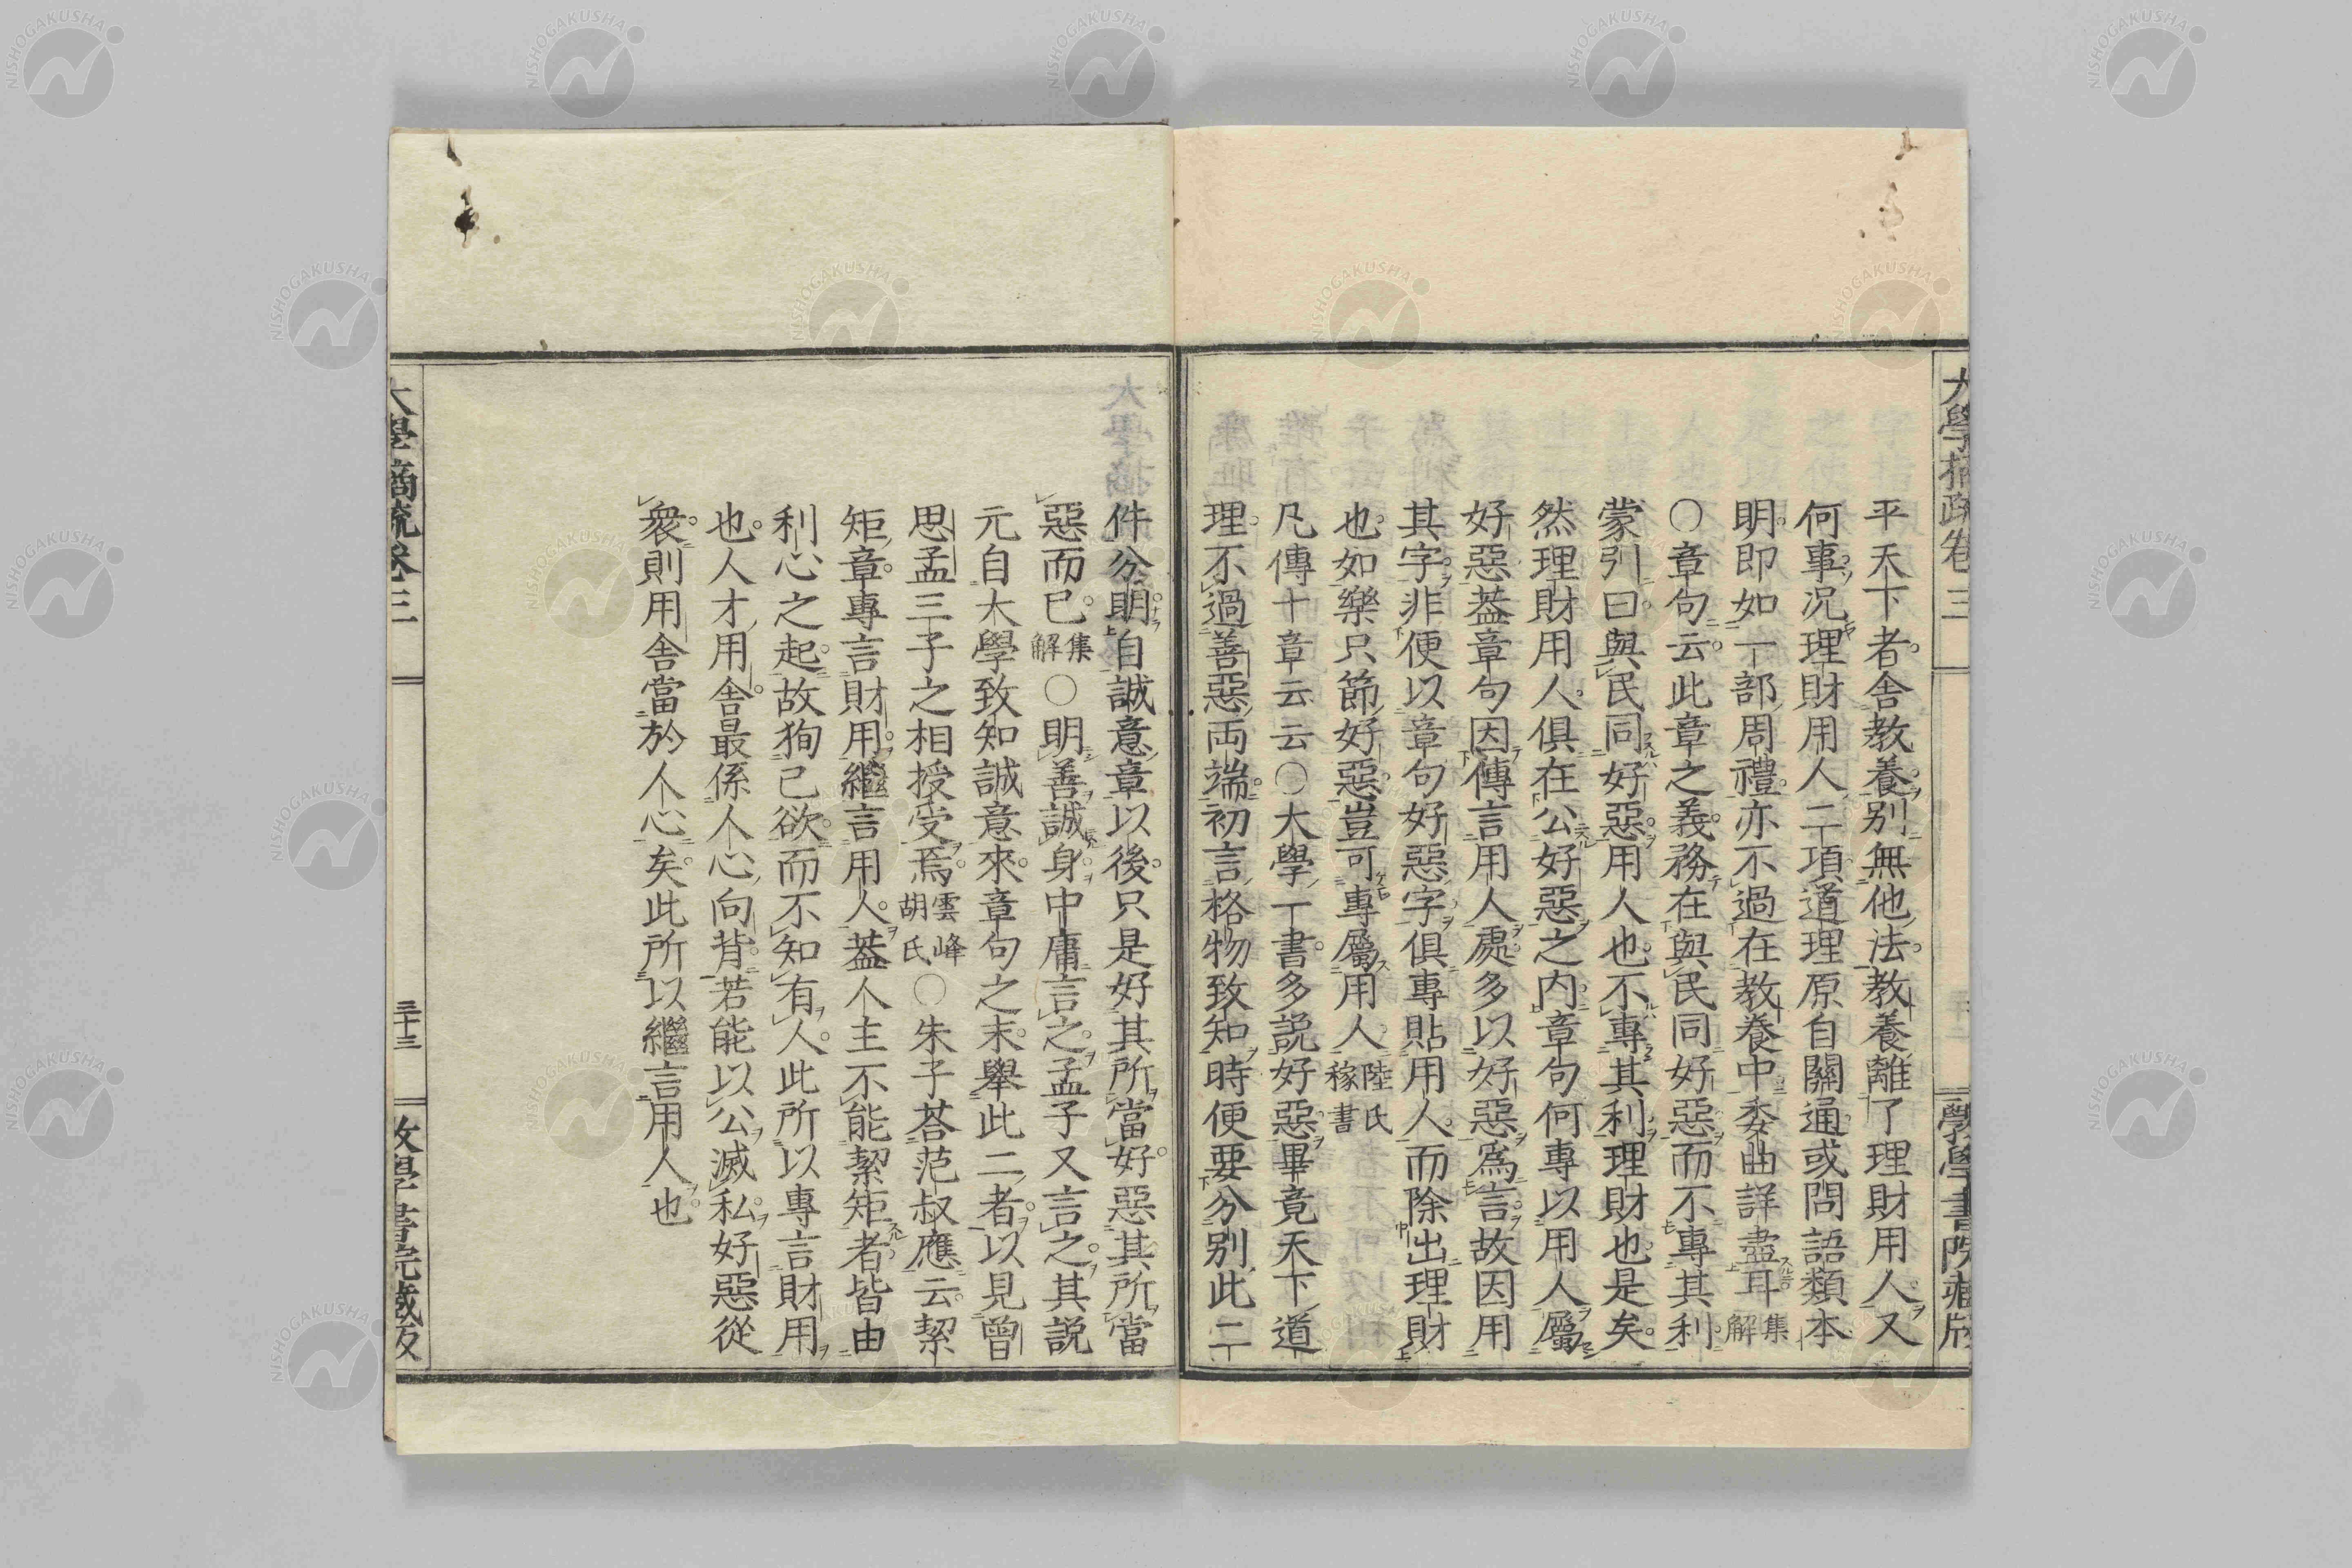 大學摘疏卷三
斆學書院藏版
平天下者舍教養別無他法教養離了理財用人又
何事况理財用人二項道理原自關通或問語類本
明即如一部周禮亦不過在教養中委曲詳盡耳集解
○章句云此章之義務在與民同好惡而不專其利
蒙引曰與民同好惡用人也不專其利理財也是矣
然理財用人俱在公好惡之內章句何專以用人屬
好惡葢章句因傳言用人處多以好惡爲言故因用
其字非便以章句好惡字俱專貼用人而除出理財
也如樂只節好惡豈可專屬用人陸氏稼書
凡傳十章云云○大學一書多説好惡畢竟天下道
理不過善惡両端初言格物致知時便要分別此二
件分明自誠意章以後只是好其所當好惡其所當
惡而已集解○明善誠身中庸言之孟子又言之其説
元自大學致知誠意來章句之末舉此二者以見曾
思孟三子之相授受焉雲峰胡氏○朱子荅范叔應云絜
矩章專言財用繼言用人葢人主不能絜矩者皆由
利心之起故狥己欲而不知有人此所以專言財用
也人才用舍最係人心向背若能以公滅私好惡從
衆則用舍當於人心矣此所以繼言用人也
大學摘疏卷三
三十三
斆學書院藏版
NISHOGAKUSHA